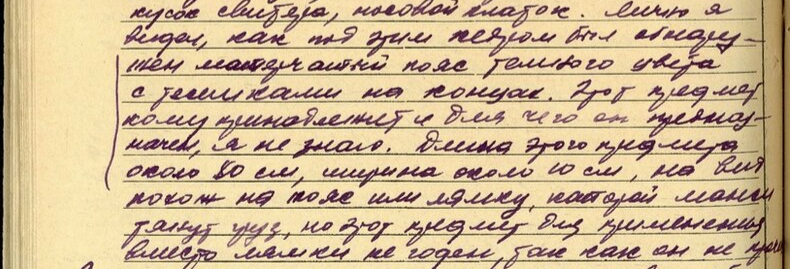 кусок свитера, носовой платок. Лично я
видел, как под этим кедром был обнару-
жен матерчатый пояс темного цвета
с тесемками на концах. Этот предмет
кому принадлежит и для чего он предназ-
начен, я не знаю. Длина этого предмета
около 80 см, ширина около 10 см, на вид
похож на пояс или лямку, каторой манси
тянут груз, но этот предмет для применения
вместо лямки не годен, так как он не